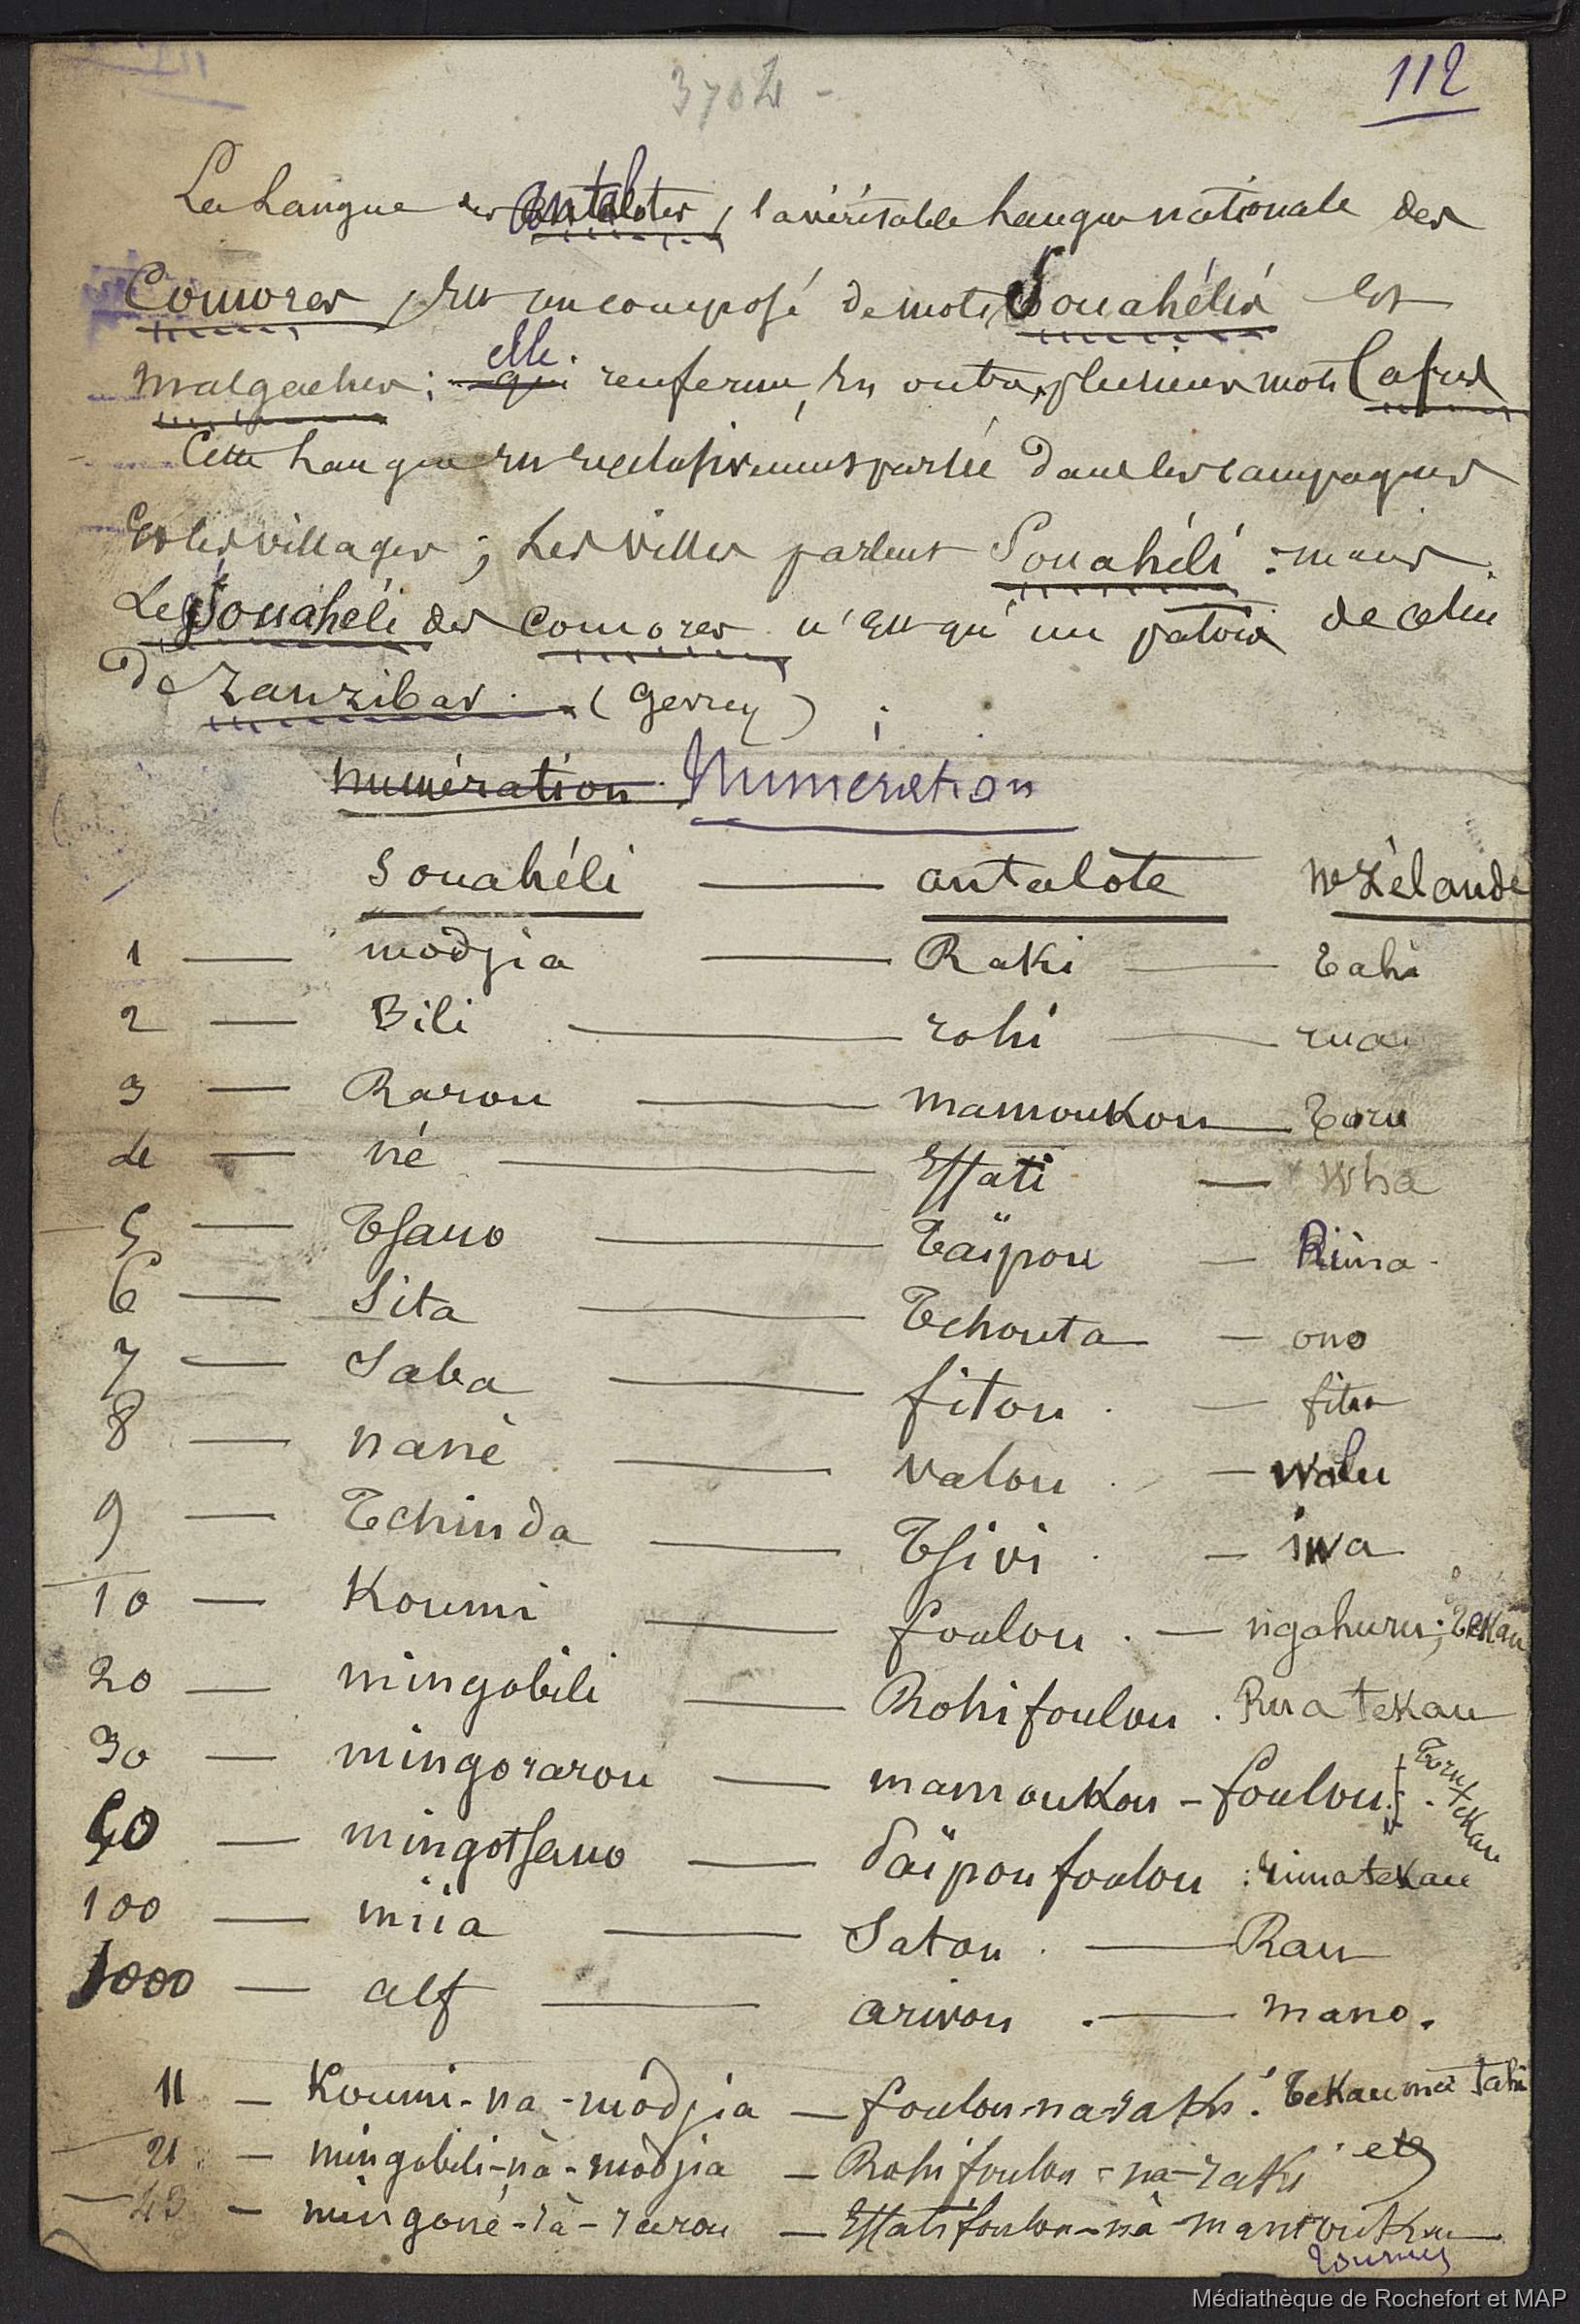 112
3702 -
La Langue des antalotes, la véritable Langue nationale des
Comores, est un composé de mots Souahélis et
malgaches; qui elle renferme, en outre, plusieurs mots Cafres
Cette Langue est exclusivement parlée dans les campagnes
et les villages; Les villes parlent Souahéli: mais
Le Souahéli des Comores n'est qu'un patois de celui
de Zanzibar. (Gevrey);
numération Numération
Souahéli — antalôte N^e Zélande
1 — modjia — Raki — Tahi
2 — Bili — rohi — rua
3 — Rarou — mamoukou — Toru
4 — né — Essati — Wha
5 — Tsano — Taïpou — Rima
6 — Sita — Tchouta — ono
7 — Saba — fitou — fitu
8 — nané — valou — walu
9 — Tchinda — Tsivi — iwa
10 — Koumi — foulou — ngahuru; Tekau
20 — mingobili — Rohifoulou. Rua tekau
30 — mingorarou — mamoukou-foulou. Toru tekau
50 — mingotsano — Taïpoufoulou: rima tekau
100 — miia — Satou — Rau
1000 — alf — arivou — mano.
11 — Koumi-na-modjia — foulou-na-raki. Tekau ma tahi
21 — mingobili-nà-modjia — Rohifoulou-na-raki etc
43 — mingoné-nà-rarou — Essatifoulou-nà-mamoukou
Tournez
Médiathèque de Rochefort et MAP